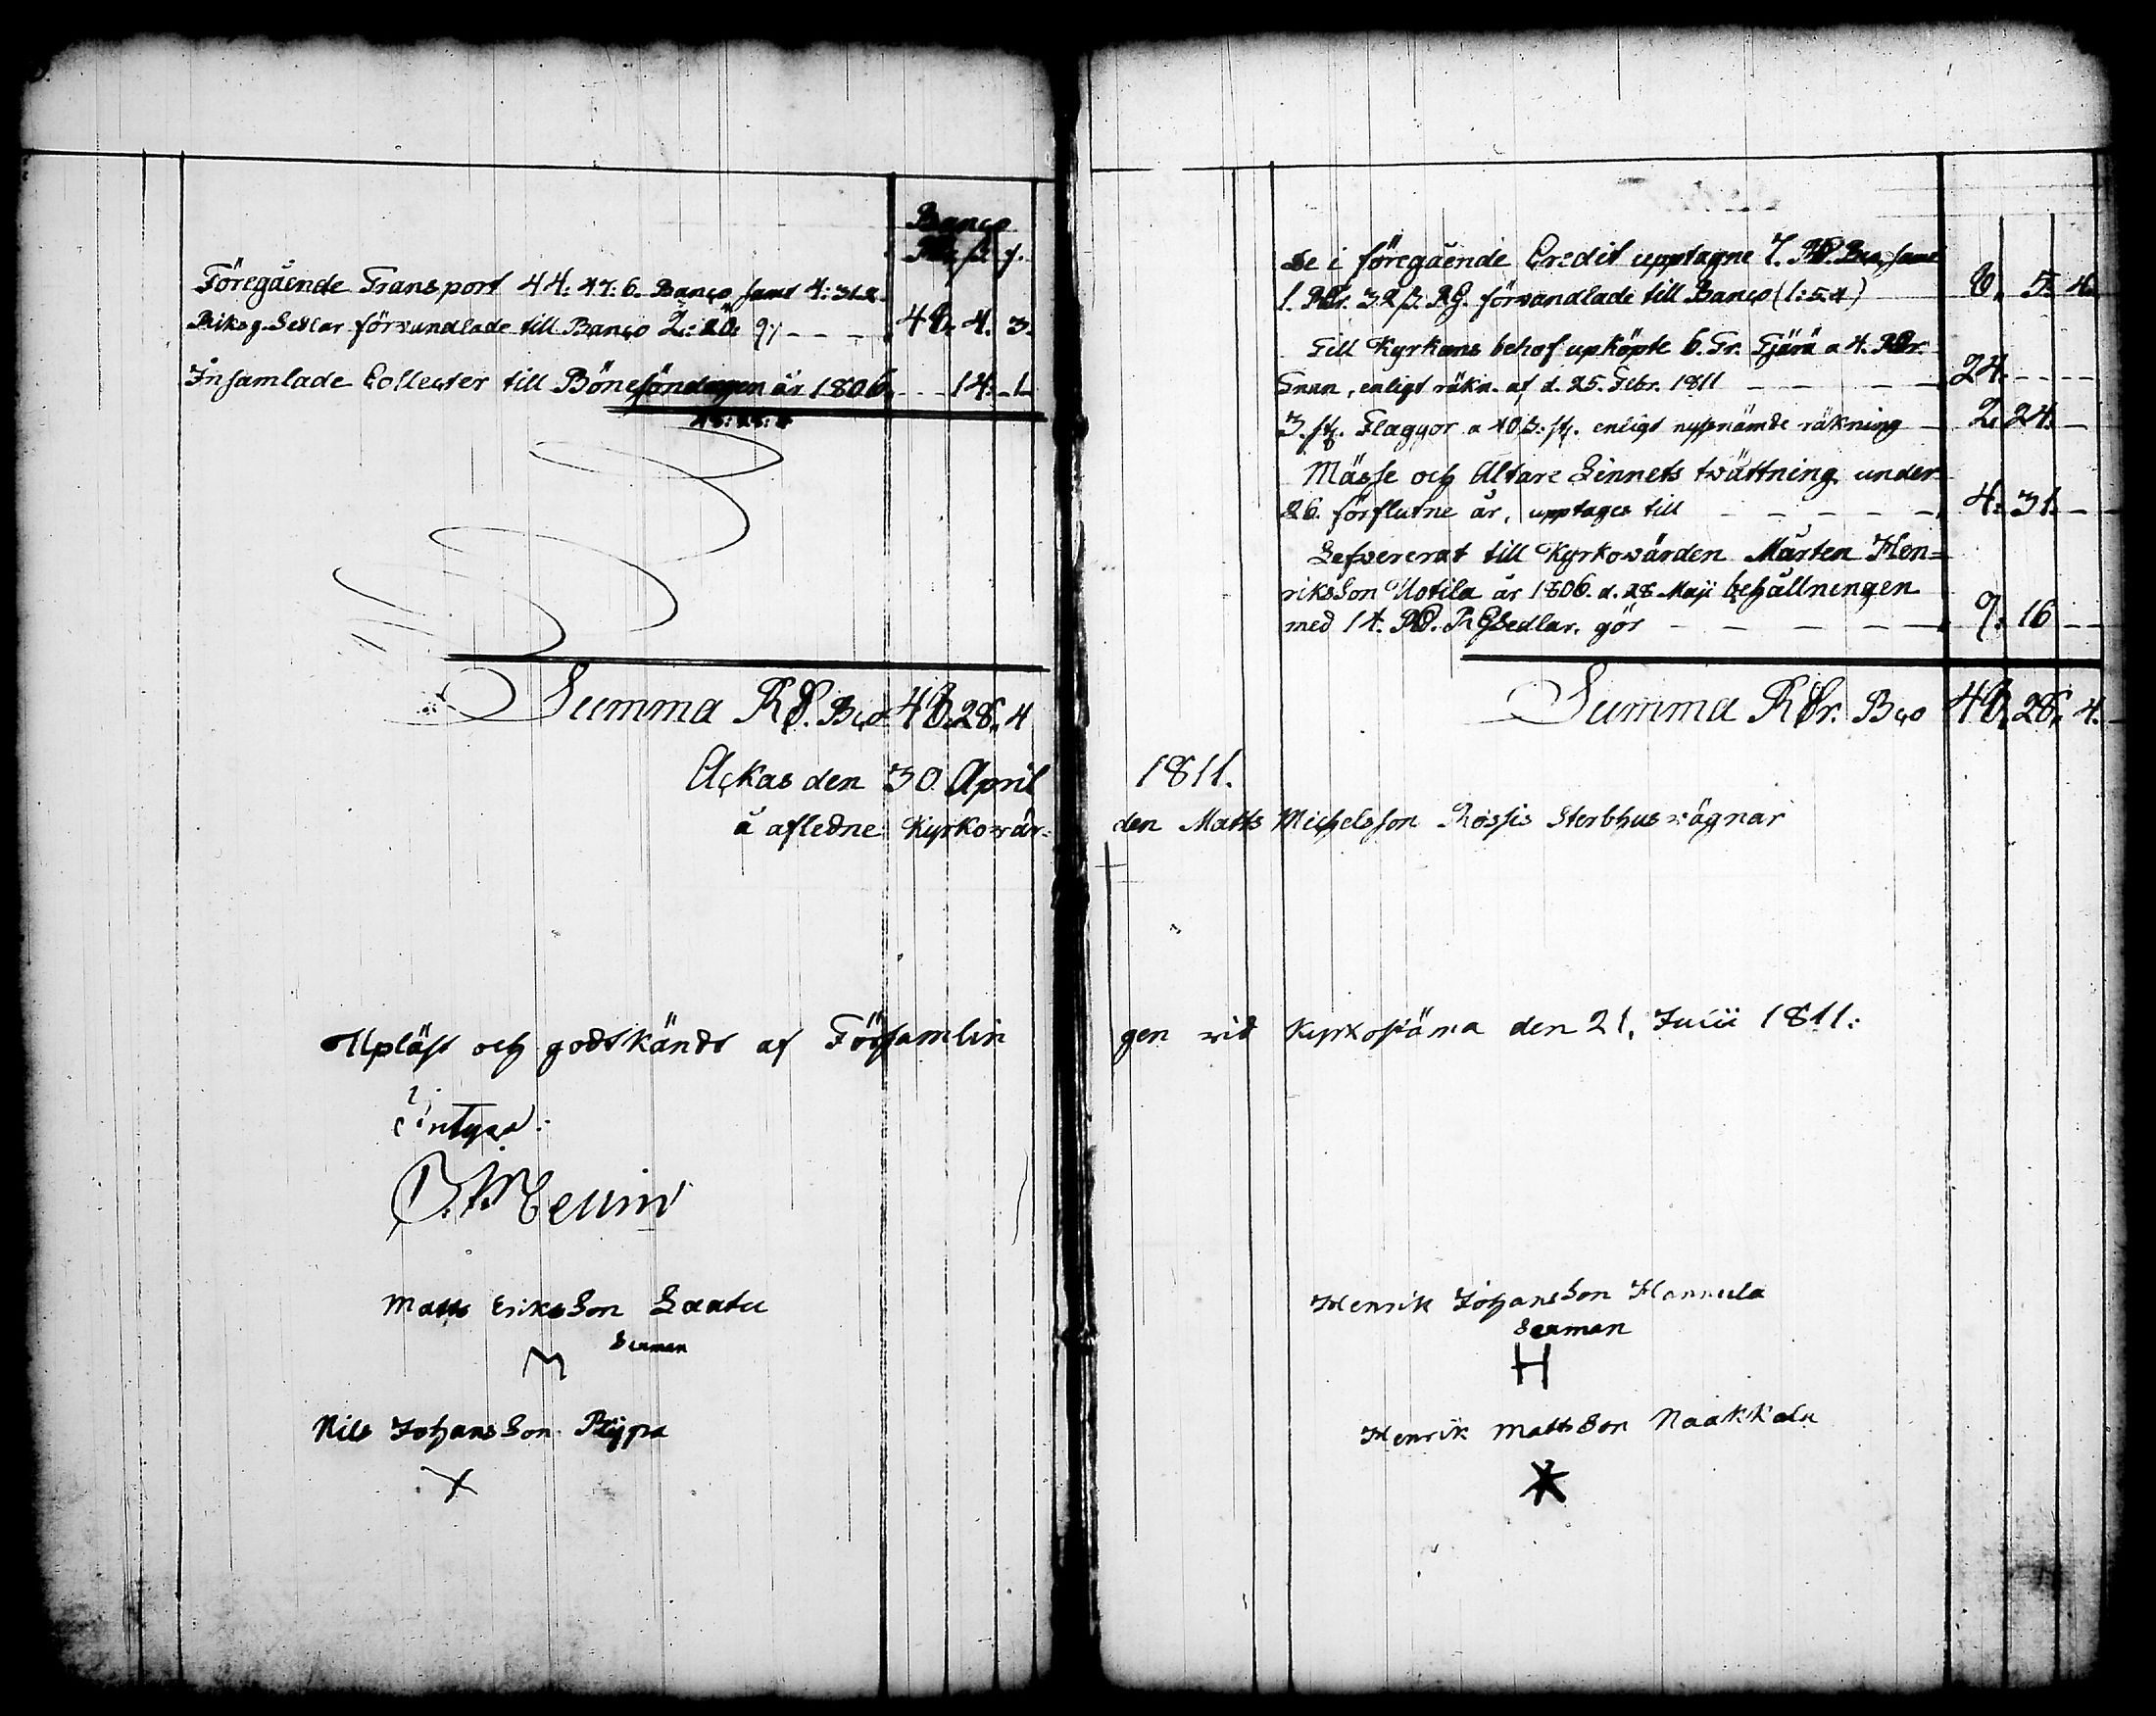 Banco
Rd. ß. r.
Föregående Transport 44: 47: 6. Banco, samt 4: 31. 2.
Riksg. Sedlar förvandlade till Banco 48. 4. 3.
Insamlade Collecter till Bönesöndagen år 1806. - - - 14. - 1
48: 28: 4
Summa Rd. Bco 48. 28. 4
Ackas den 30 April
å afledne Kyrkovär-
Upläst och godkändt af Församlin
Intyga:
Matts Eriksson Laatu
Sexman
M
Nils Johansson
X
De i föregående Credit upptagne 7. Rd. Bco, samt
1. Rdr. 32 ß. RG. förvandlade till Banco (1: 5. 4) 8. 5. 4.
Till Kyrkans behof upköpte 6. Tr. Tjära a 4. Rdr.
Tnan, enligt räkn. af d. 25. Febr. 1811 - - - - 24. - - -
3. st. Flaggor a 40 ß. st. enligt nyssnämde räkning - 2. 24. -
Mässe och Altare Linnets tvättning under
26. förflutne år, upptages till - - - - - 4. 31. -
Lefvererat till Kyrkovärden Mårten Hen=
riksson Uotila år 1806. d. 28 Maji behållningen
med 14. Rd. RGSedlar. gör - - - - - 9. 16 - -
Summa Rdr. Bco 48. 28. 4.
1811.
den Matts Michelsson Rossis Sterbhus vägnar
gen vid Kyrkostäma den 21. Julii 1811:
Henrik Johansson Hannula
Sexman
H
Henrik Mattsson Naakkala